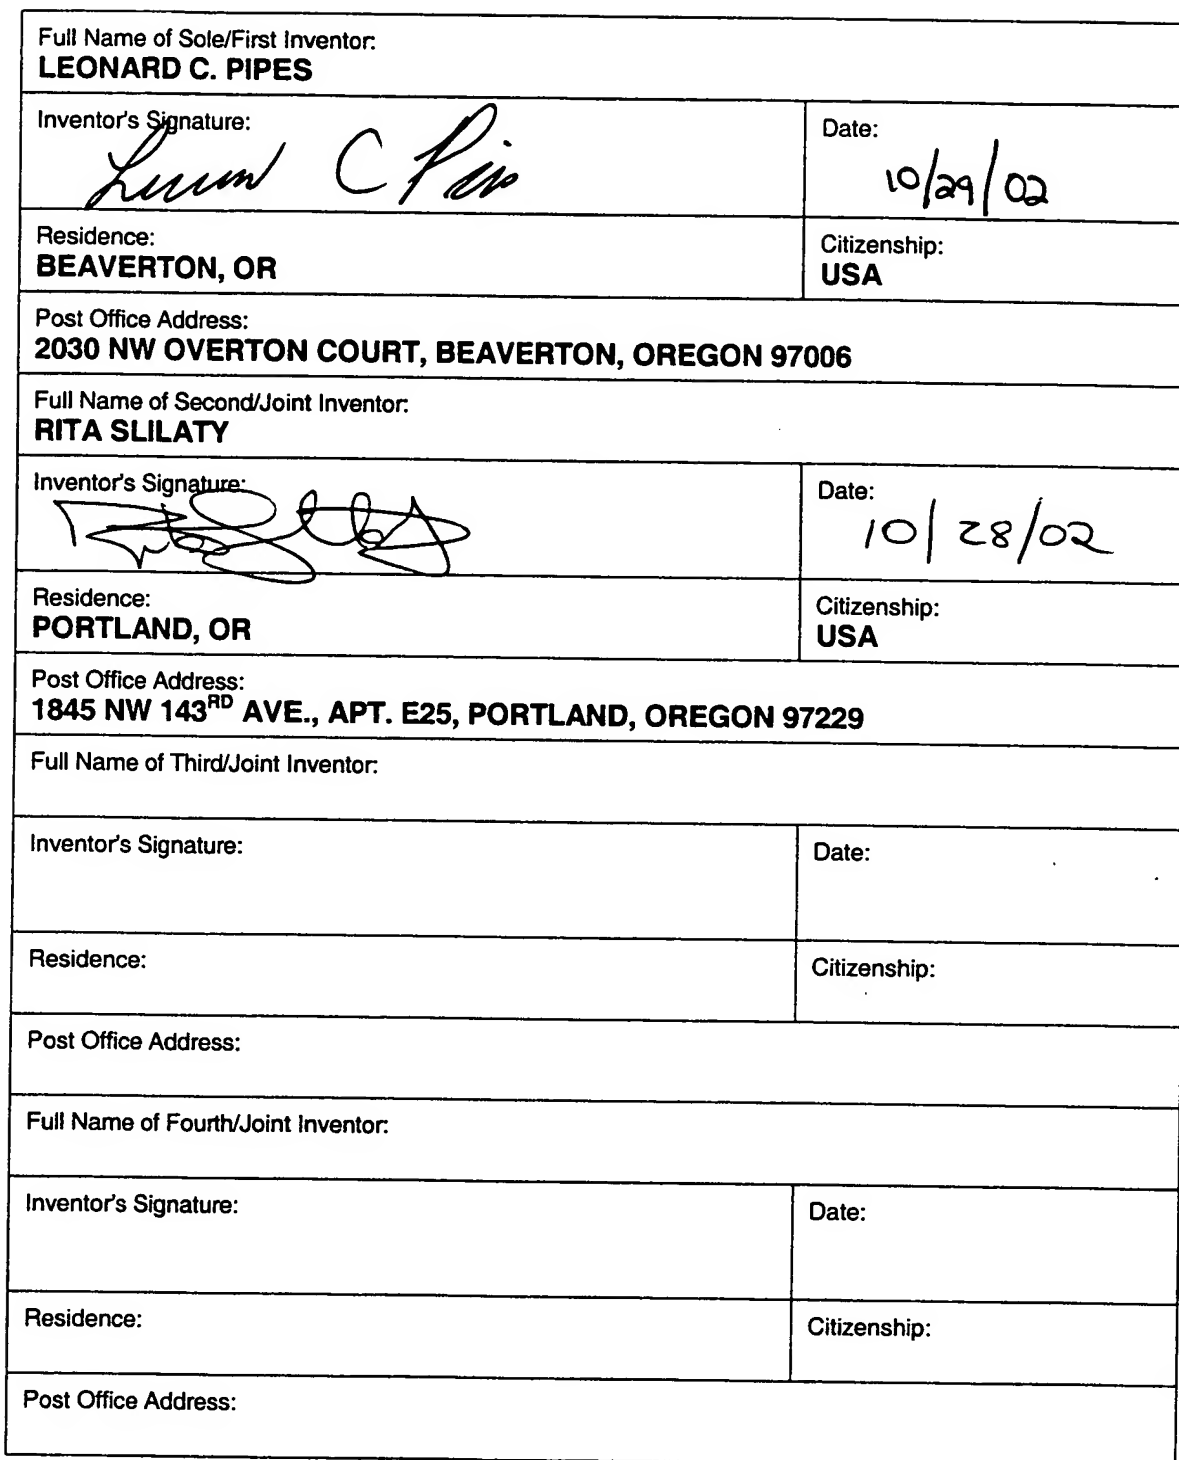 Full Name of Sole/First Inventor:
LEONARD C. PIPES
Inventor's Signature:
Date:
10/29/02
Residence:
BEAVERTON, OR
Citizenship:
USA
Post Office Address:
2030 NW OVERTON COURT, BEAVERTON, OREGON 97006
Full Name of Second/Joint Inventor:
RITA SLILATY
Inventor's Signature:
Date:
10/28/02
Residence:
PORTLAND, OR
Citizenship:
USA
Post Office Address:
1845 NW 143RD AVE., APT. E25, PORTLAND, OREGON 97229
Full Name of Third/Joint Inventor:
Inventor's Signature:
Date:
Residence:
Citizenship:
Post Office Address:
Full Name of Fourth/Joint Inventor:
Inventor's Signature:
Date:
Residence:
Citizenship:
Post Office Address: